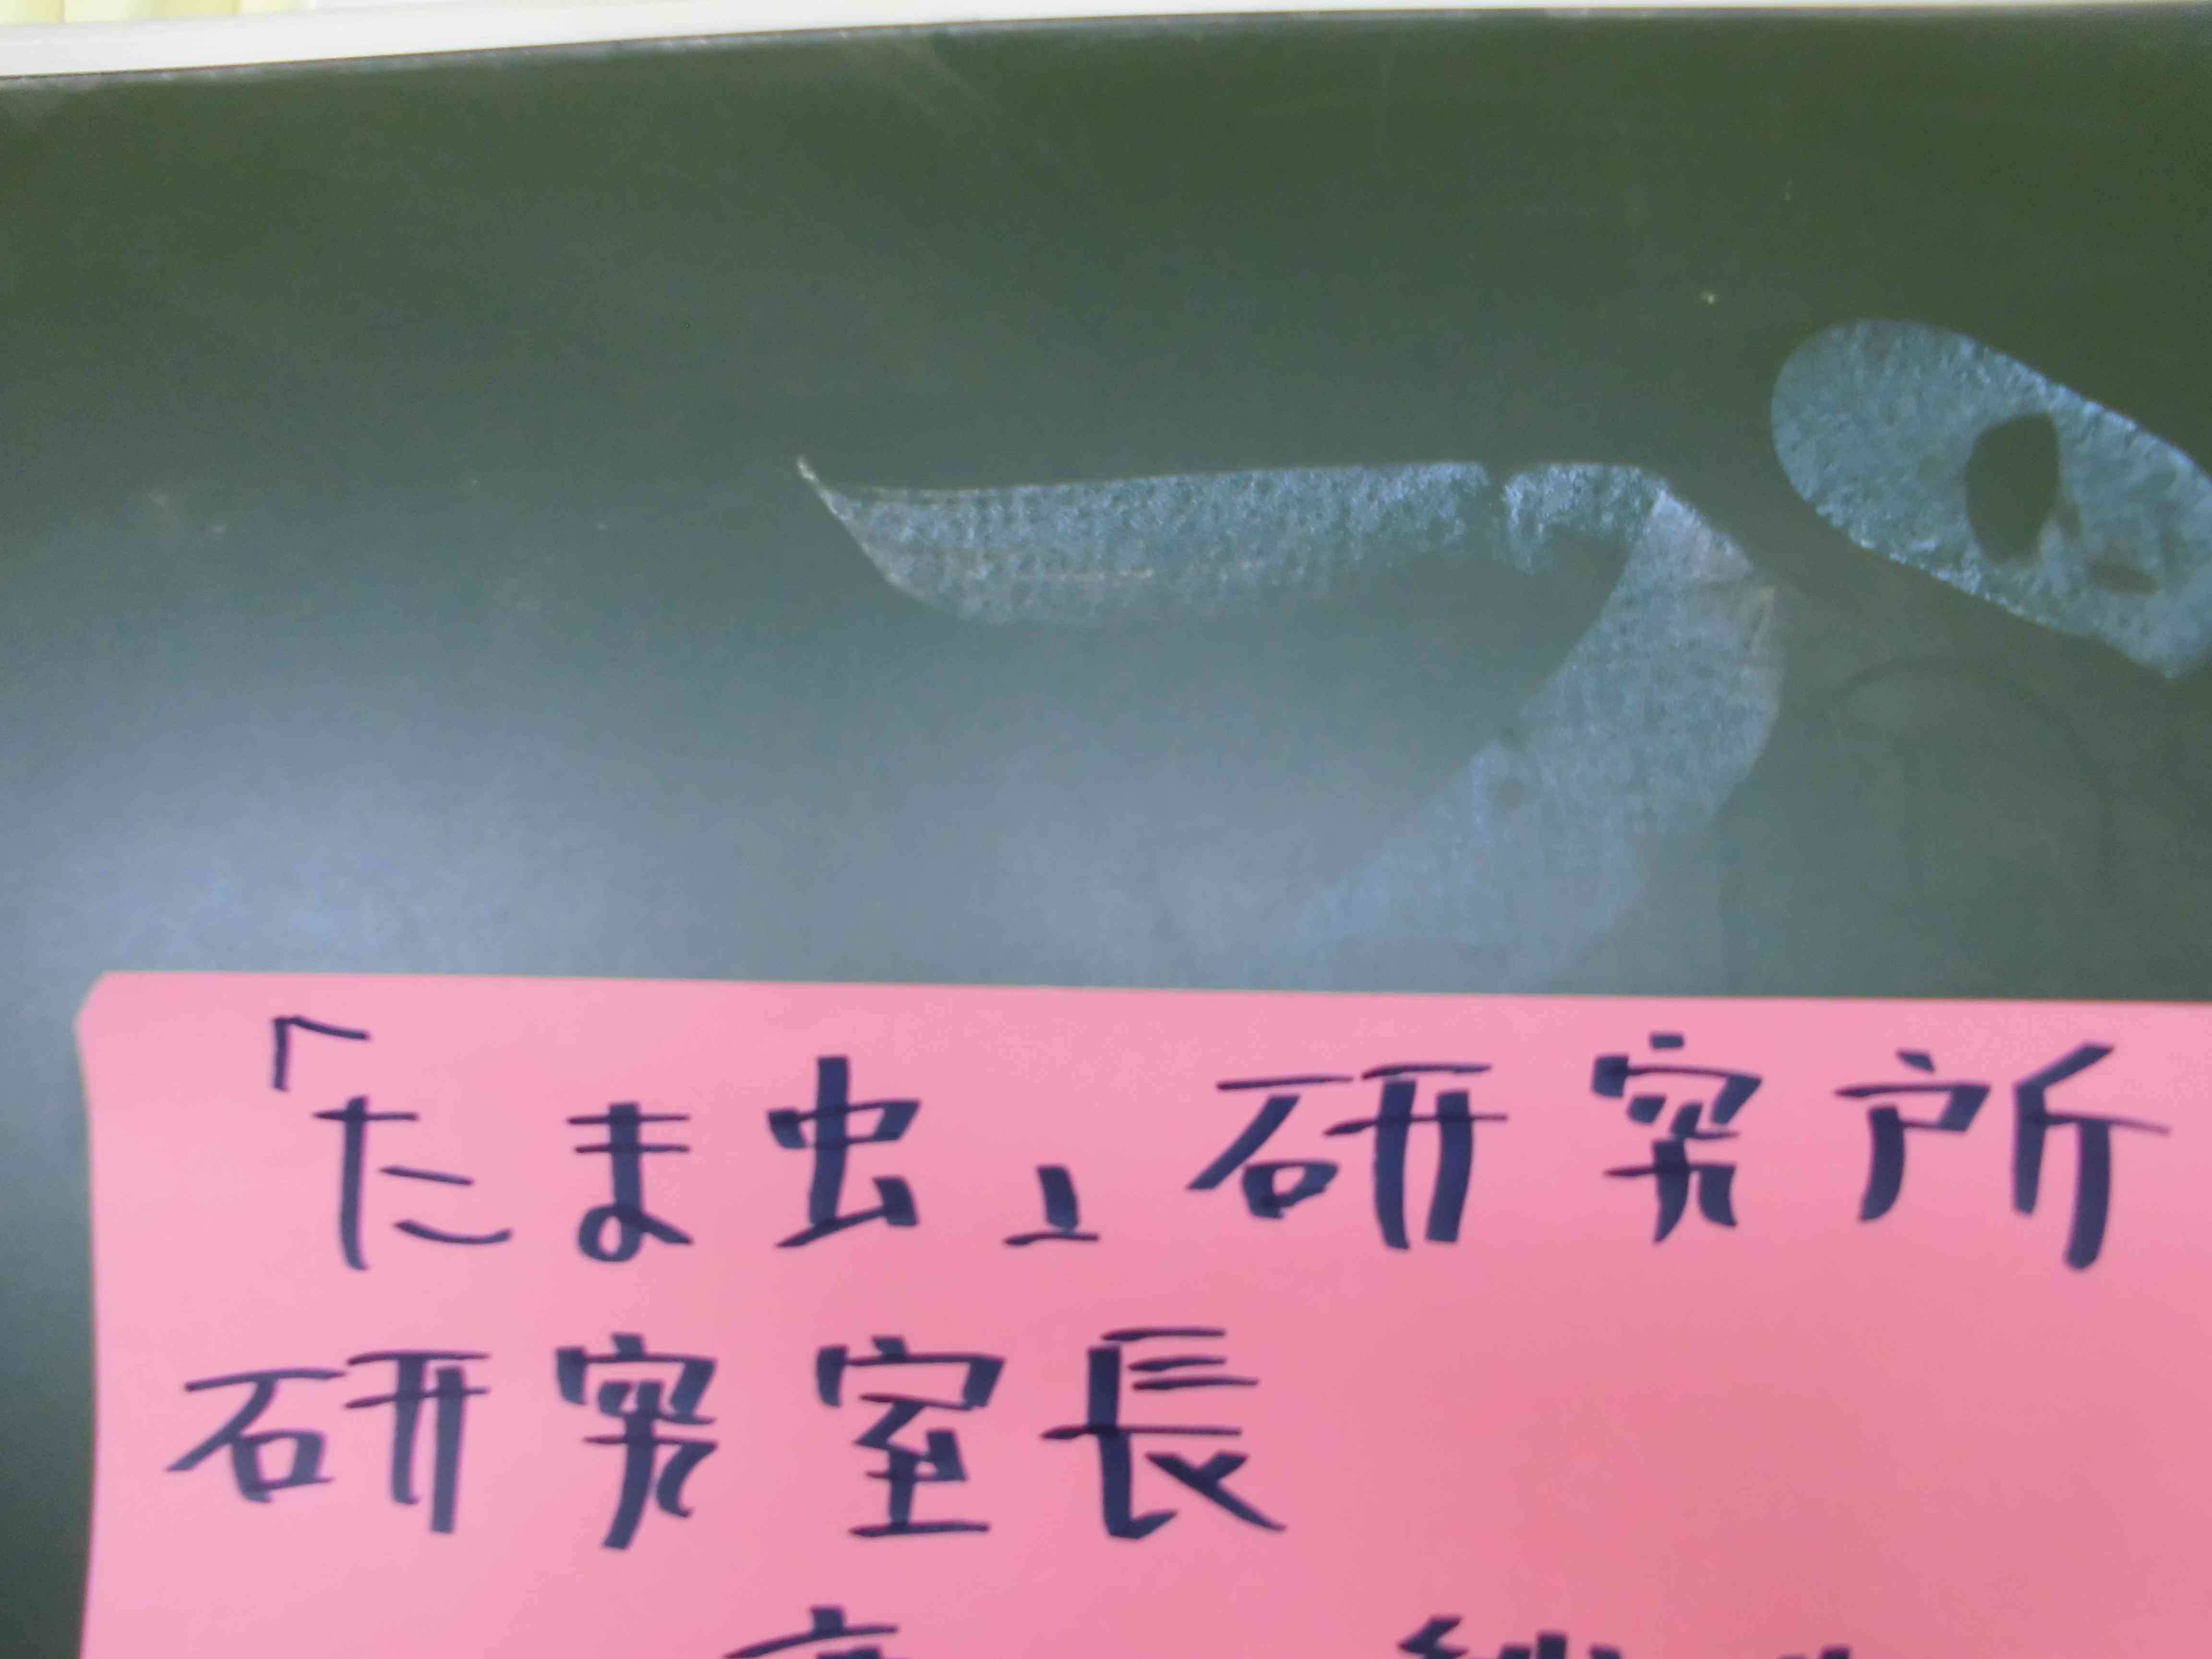 「たま虫」研究所
研究室長